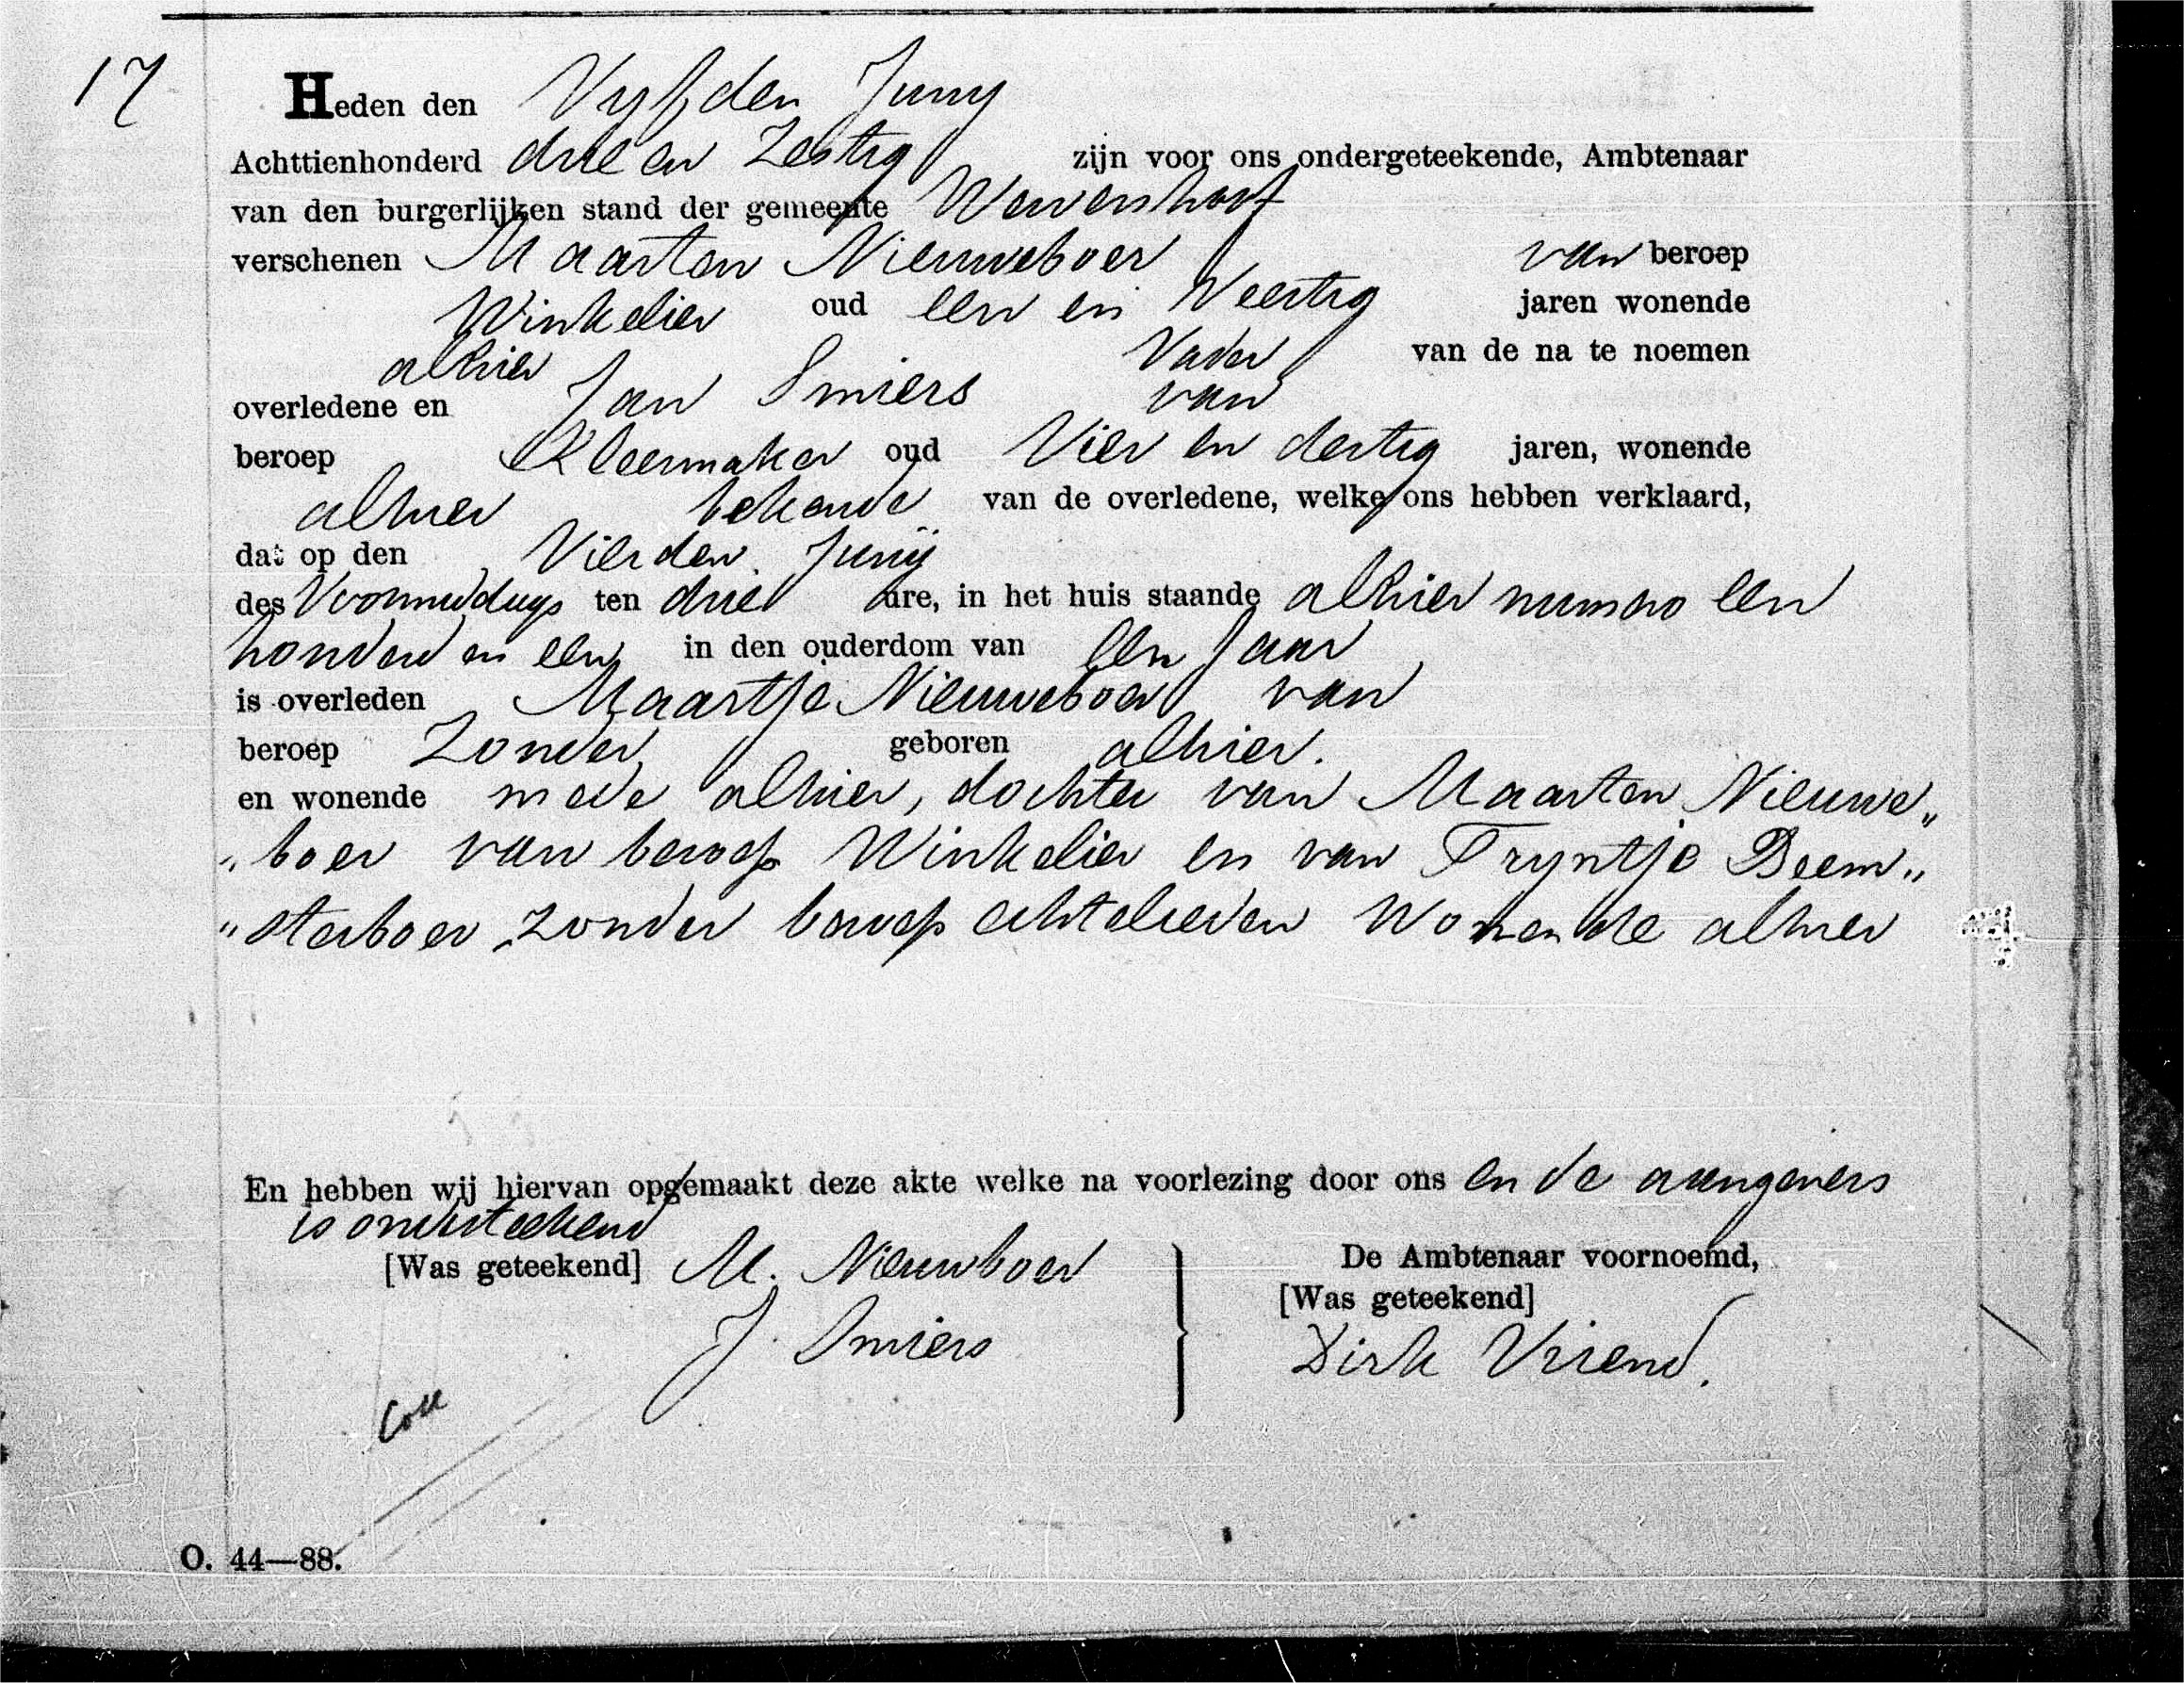 17
Heden den Vyfden Juny
Achttienhonderd drie en Zestig zijn voor ons ondergeteekende, Ambtenaar
van den burgerlijken stand der gemeente Wervershoof
verschenen Maarten Nieuweboer van beroep
Winkelier oud een en Veertig jaren wonende
alhier Vader van de na te noemen
overledene en Jan Smiers van
beroep Kleermaker oud Vier en dertig jaren, wonende
alhier bekende van de overledene, welke ons hebben verklaard,
dat op den Vierden Junij
des Voormiddags ten drie ure, in het huis staande alhier numero een
honderd en een in den ouderdom van Een Jaar
is overleden Maartje Nieuweboer van
beroep Zonder geboren alhier.
en wonende mede alhier, dochter van Maarten Nieuwe„
„boer van beroep Winkelier en van Tryntje Beem„
„sterboer zonder beroep echtelieden Wonende alhier
En hebben wij hiervan opgemaakt deze akte welke na voorlezing door ons en de aangevers
is onderteekend
[Was geteekend] M. Nieuwboer
J. Smiers
De Ambtenaar voornoemd,
[Was geteekend]
Dirk Vriend.
Coll
O. 44—88.